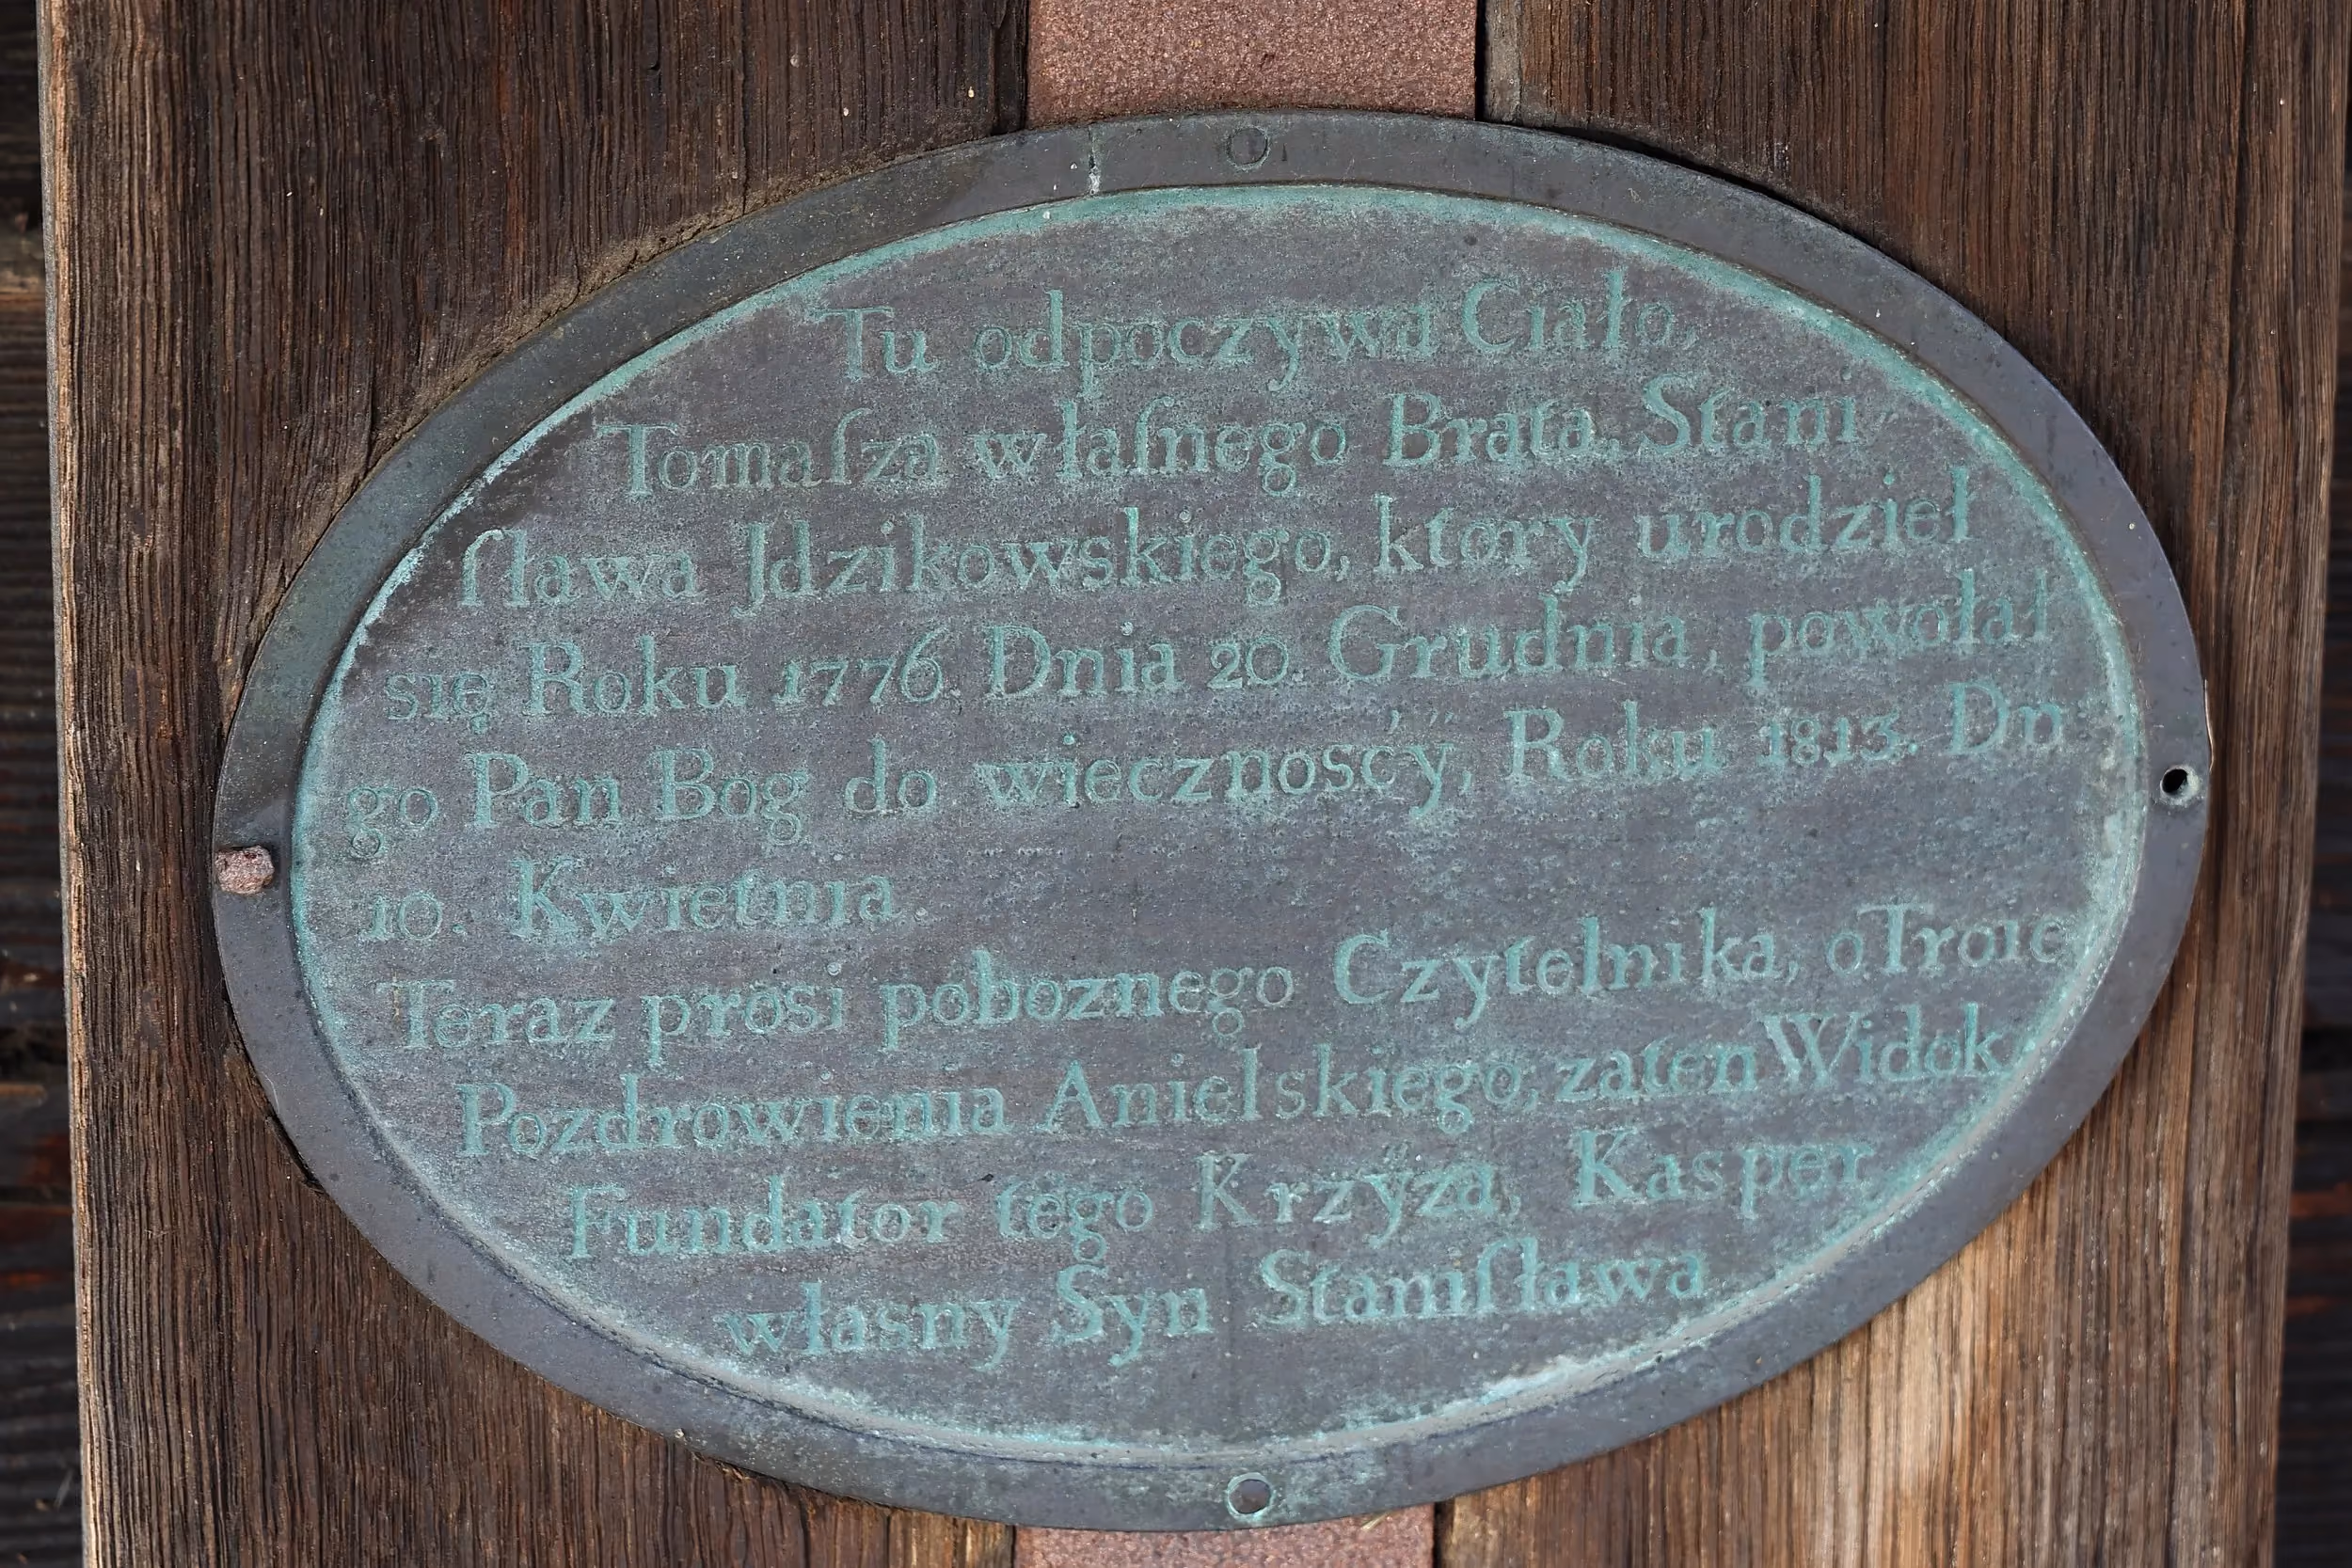 Tu odpoczywa Ciało,
Tomaſza właſnego Brata, Stani-
ſława Jdzikowskiego, ktory urodzieł
się Roku 1776. Dnia 20. Grudnia, powołał
go Pan Bog do wiecznosćÿ, Roku 1813. Dn:
10. Kwietnia.
Teraz prosi poboznego Czytelnika, o Troie
Pozdrowienia Anielskiego, za ten Widok
Fundator tego Krzÿza, Kasper
własny Syn Staniſława